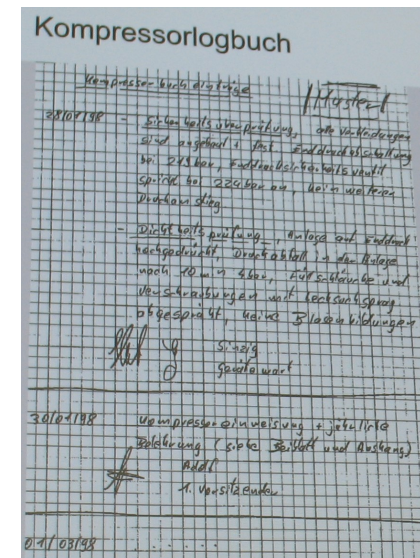 Kompressorlogbuch
Kompressorbucheinträge
Muster!
28/01/98 - Sicherheitsüberprüfung, alle Verbindungen
sind angebaut + fest. Enddruckabschaltung
bei 219 bar, Enddrucksicherheitsventil
spricht bei 224 bar an, kein weiterer
Druckanstieg.
- Dichtheitsprüfung, Anlage auf Enddruck
hochgedrückt, Druckabfall in der Anlage
nach 10 min 4 bar, Füllschläuche und
Verschraubungen mit Lecksuchspray
abgesprüht, keine Blasenbildungen
Sinzig
Gerätewart
30/01/98 Kompressoreinweisung + jährliche
Belehrung (siehe Beiblatt und Aushang)
1. Vorsitzender
01/03/98 . . . . . .